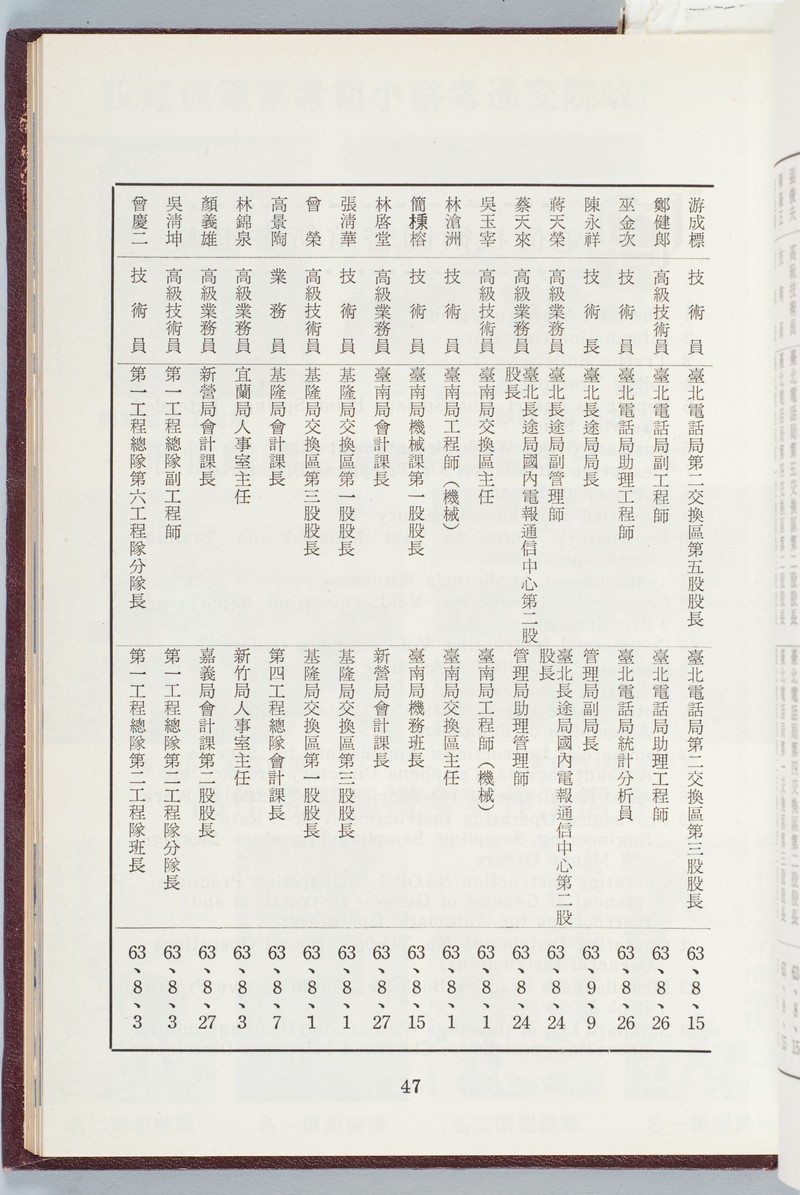 游成標 技術員 臺北電話局第二交換區第五股股長 臺北電話局第二交換區第三股股長 63、8、15
鄭健郎 高級技術員 臺北電話局副工程師 臺北電話局助理工程師 63、8、26
巫金次 技術員 臺北電話局助理工程師 臺北電話局統計分析員 63、8、26
陳永祥 技術長 臺北長途局局長 管理局副局長 63、9、9
蔣天榮 高級業務員 臺北長途局副管理師 臺北長途局國內電報通信中心第二股股長 63、8、24
蔡天來 高級業務員 臺北長途局國內電報通信中心第二股股長 管理局助理管理師 63、8、24
吳玉宰 高級技術員 臺南局交換區主任 臺南局工程師（機械） 63、8、1
林滄洲 技術員 臺南局工程師（機械） 臺南局交換區主任 63、8、1
簡榕 技術員 臺南局機械課第一股股長 臺南局機務班長 63、8、15
林啓堂 高級業務員 臺南局會計課長 新營局會計課長 63、8、27
張淸華 技術員 基隆局交換區第一股股長 基隆局交換區第三股股長 63、8、1
曾榮 高級技術員 基隆局交換區第三股股長 基隆局交換區第一股股長 63、8、1
高景陶 業務員 基隆局會計課長 第四工程總隊會計課長 63、8、7
林錦泉 高級業務員 宜蘭局人事室主任 新竹局人事室主任 63、8、3
顏義雄 高級業務員 新營局會計課長 嘉義局會計課第二股股長 63、8、27
吳淸坤 高級技術員 第一工程總隊副工程師 第一工程總隊第二工程隊分隊長 63、8、3
曾慶二 技術員 第一工程總隊第六工程隊分隊長 第一工程總隊第二工程隊班長 63、8、3
47